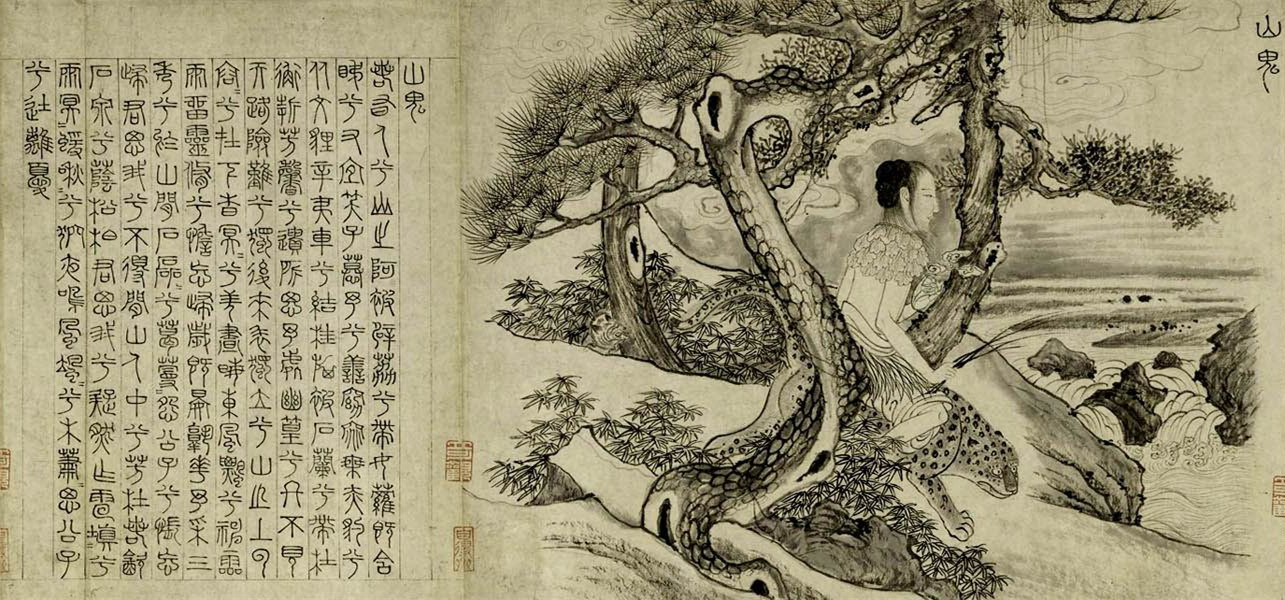 山鬼
山鬼
若有人兮山之阿被薜荔兮帶女蘿既含
睇兮又宜笑子慕予兮善窈窕乘赤豹兮
从文貍辛夷車兮結桂旗被石蘭兮帶杜
衡折芳馨兮遺所思予處幽篁兮不見
天路險難兮獨後來表獨立兮山之上云
容〻兮在下杳冥〻兮羌晝晦東風飄兮神靈
雨留靈脩兮憺忘歸歲既晏孰華予采三
秀兮於山間石磊〻兮葛蔓〻怨公子兮悵忘
歸君思我兮不得閒山人中兮芳杜若飲
石泉兮蔭松柏君思我兮疑然作雷填〻兮
雨冥〻猨啾〻兮狖夜鳴風颯〻兮木蕭〻思公子
兮徒離憂